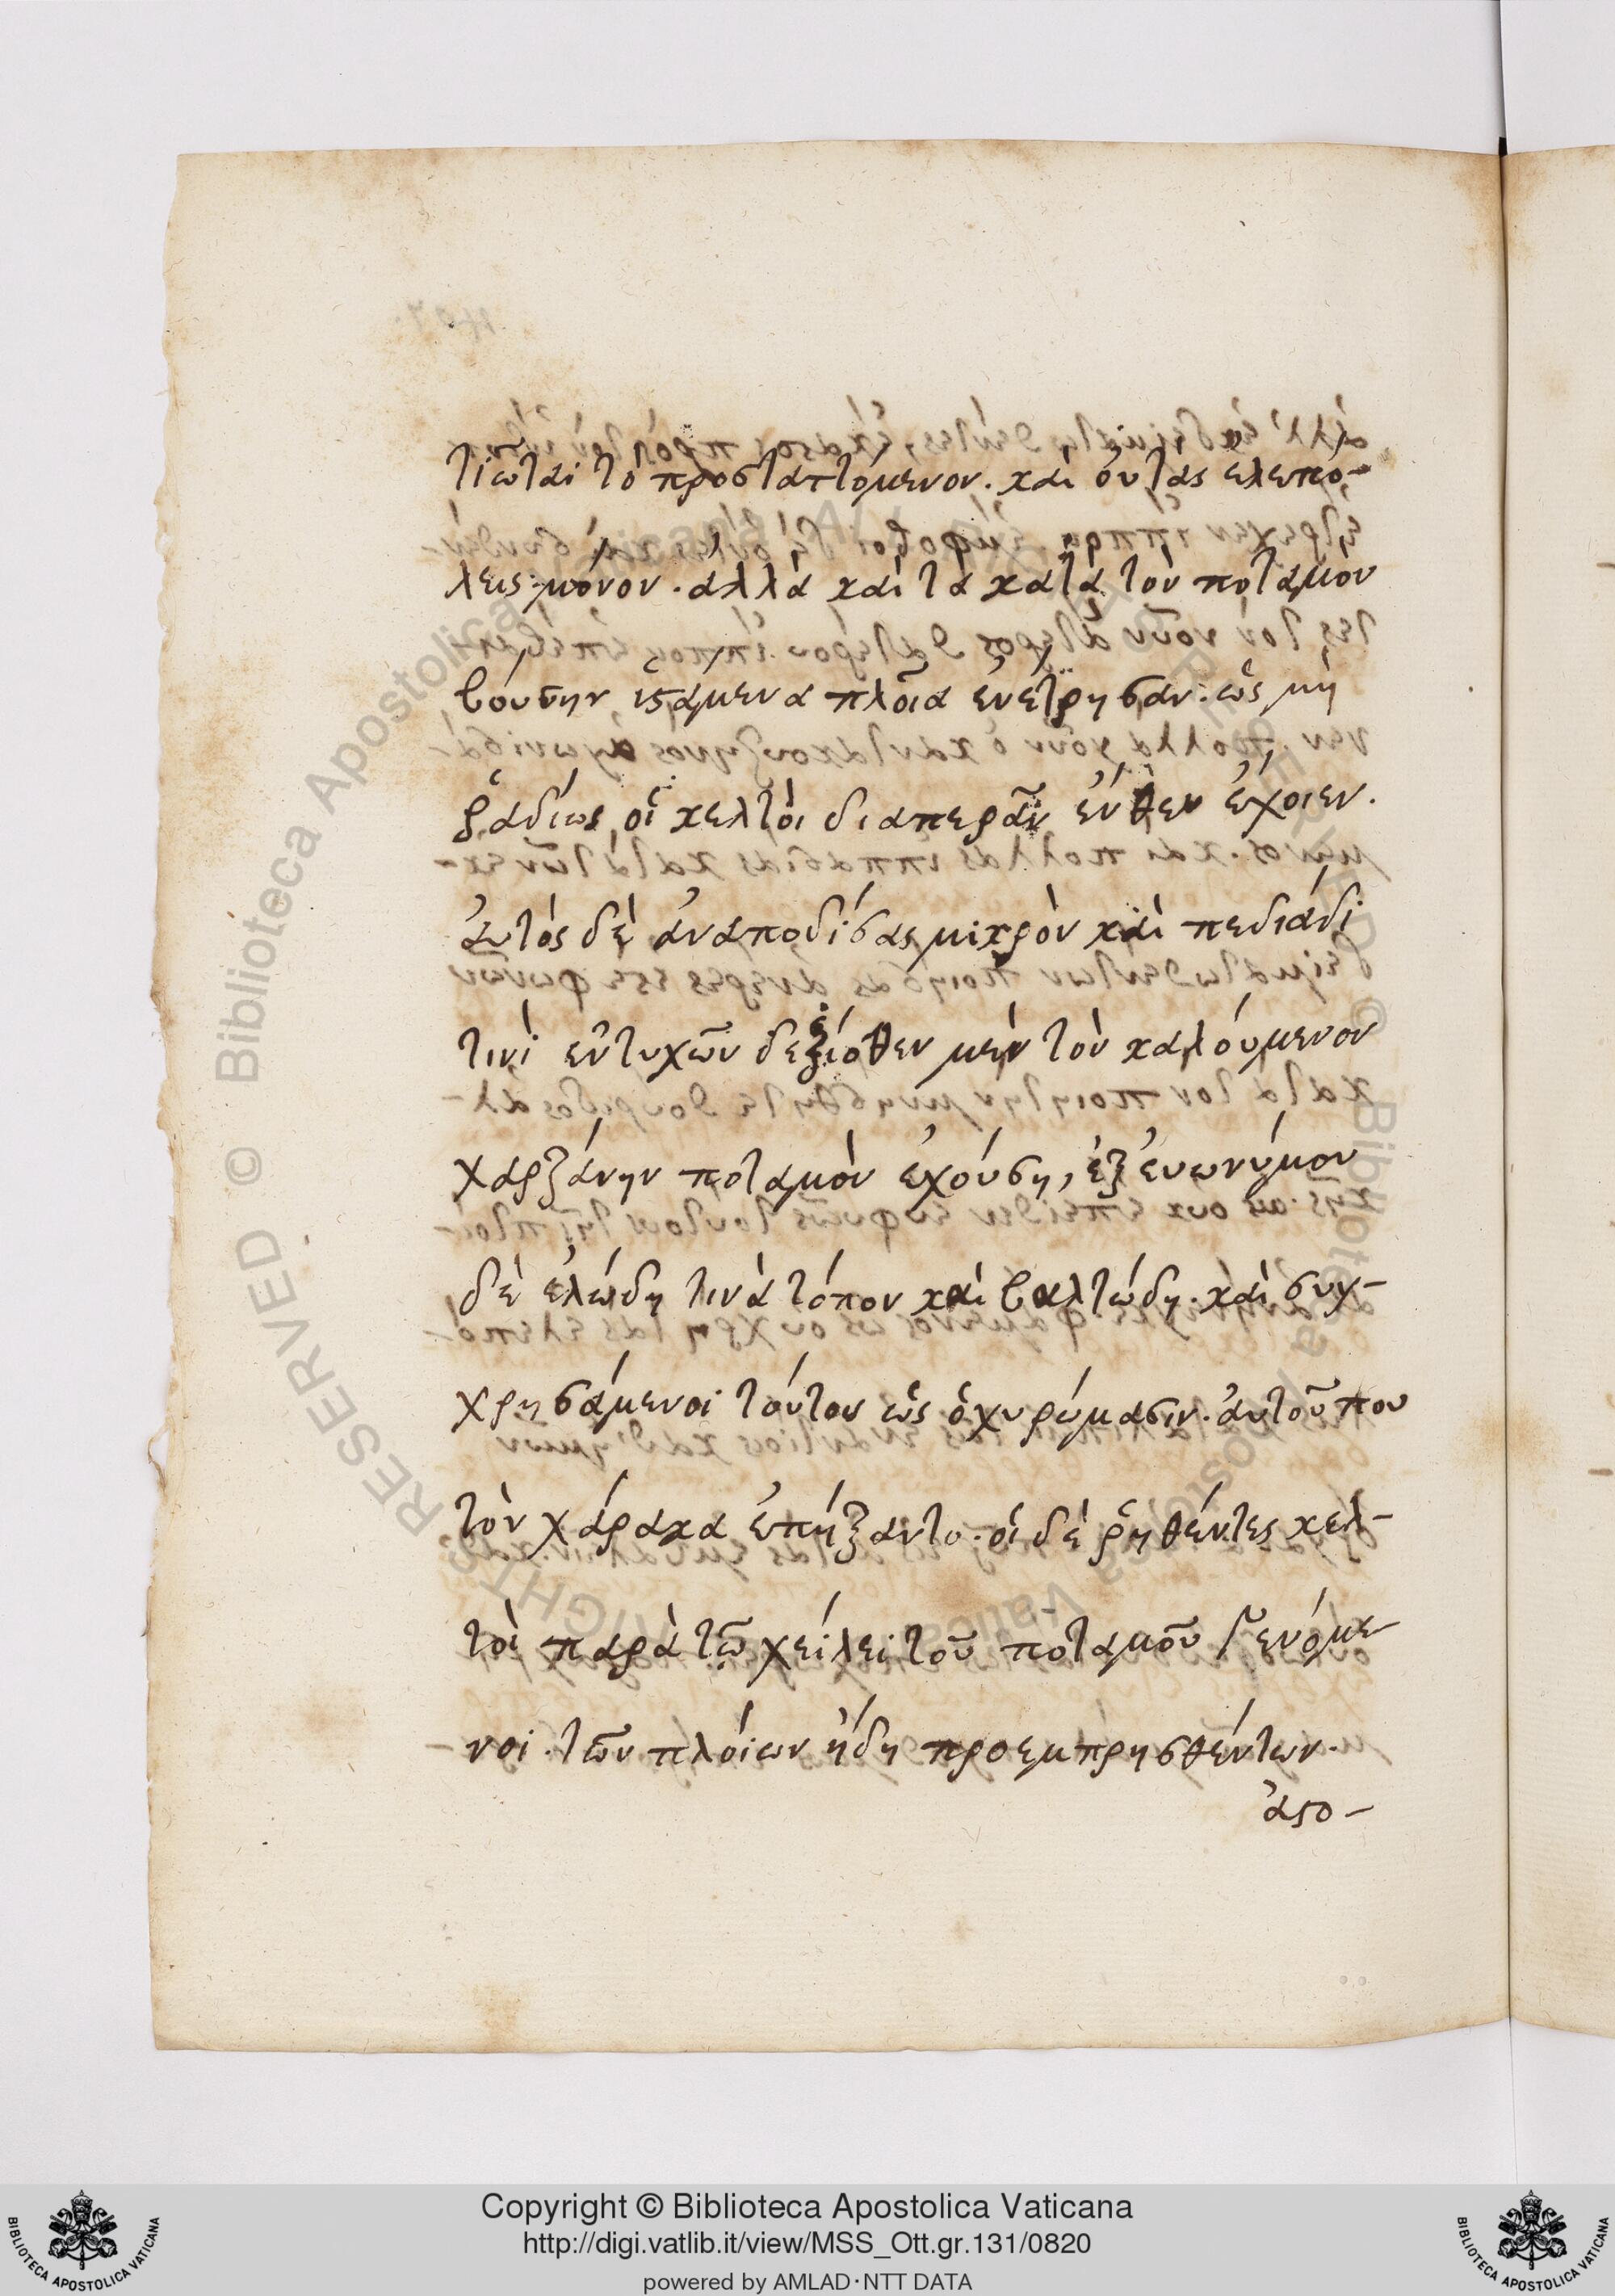 τιῶται τὸ προσταττόμενον. καὶ οὐ τὰς ἑλεπό-
λεις μόνον. ἀλλὰ καὶ τὰ κατὰ τὸν ποταμὸν
βούσην ἱστάμενα πλοῖα ἐνέπρησαν. ὡς μὴ
ῥαδίως οἱ κελτοὶ διαπερᾶν ἐνθεν ἔχοιεν.
ἀυτὸς δὲ ἀναποδίσας μικρὸν καὶ πεδιάδι
τινὶ ἐντυχῶν δεξιόθεν μὲν τὸν καλούμενον
χαρζάνην ποταμὸν ἐχούση, ἐξ ἐυωνύμου
δὲ ἑλώδη τινὰ τόπον καὶ βαλτώδη. καὶ συγ-
χρησάμενοι τούτον ὡς ὀχυρώμασιν. ἀυτοῦ που
τὸν χάρακα ἐπήξαντο. οἱ δὲ ῥηθέντες κελ-
τοὶ παρὰ τῷ χείλει τοῦ ποταμοῦ γενόμε-
νοι. τῶν πλοίων ἤδη προεμπρησθέντων.
ἀστο-
Copyright © Biblioteca Apostolica Vaticana
http://digi.vatlib.it/view/MSS_Ott.gr.131/0820
powered by AMLAD·NTT DATA
BIBLIOTECA APOSTOLICA VATICANA
BIBLIOTECA APOSTOLICA VATICANA